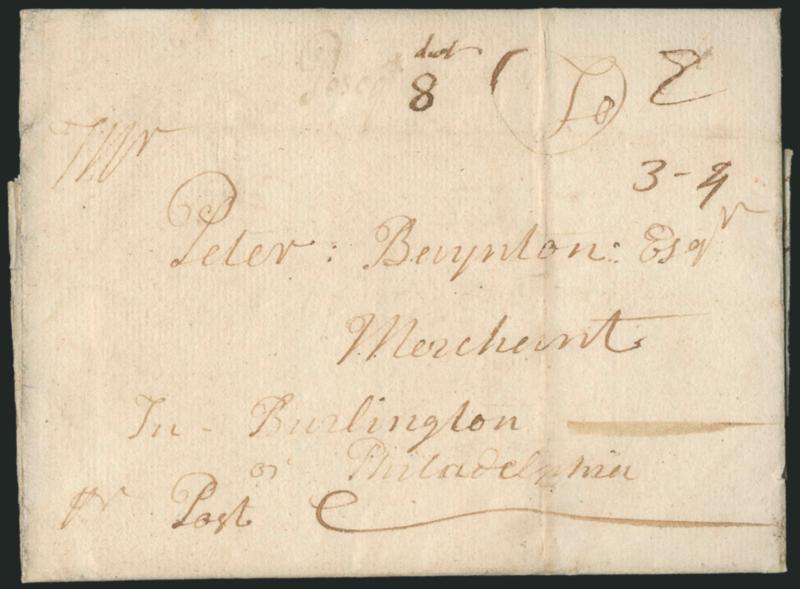 dwt
8
3-4
Peter : Baynton : Esqr
Merchant
In - Burlington
or Philadelphia
pr Post